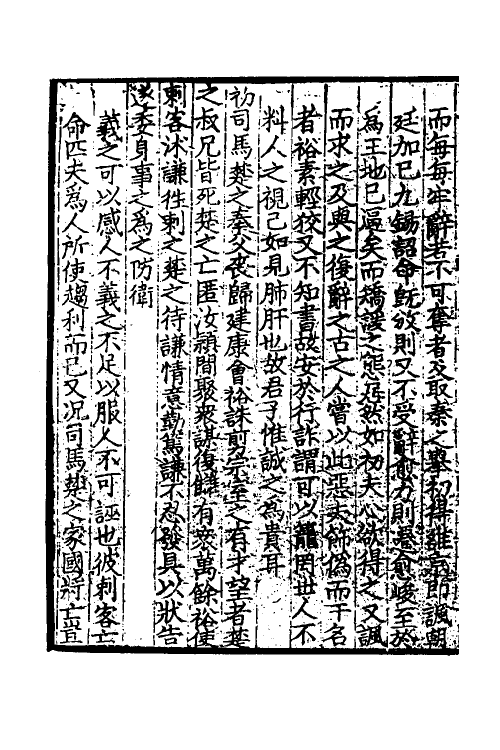 而每每牢辭若不可奪者及取秦之舉初得雒京即諷朝
廷加己九錫詔命既放則又不受辭愈力則愈峻至於
為王地已逼矣而矯謾之態居然如初夫心欲得之又諷
而求之及與之復辭之古之人嘗以此惡夫飾偽而干名
者裕素輕狡又不知書故安於行詐謂可以籠罔世人不
料人之視己如見肺肝也故君子惟誠之為貴耳
初司馬楚之奉父喪歸建康會裕誅剪宗室之有才望者楚
之叔兄皆死楚之亡匿汝潁間聚衆謀復讎有衆萬餘裕使
刺客沐謙徃刺之楚之待謙情意勤篤謙不忍發具以狀告
遂委身事之為之防衛
義之可以感人不義之不足以服人不可誣也彼刺客亡
命匹夫為人所使趨利而已又況司馬楚之家國將亡豈